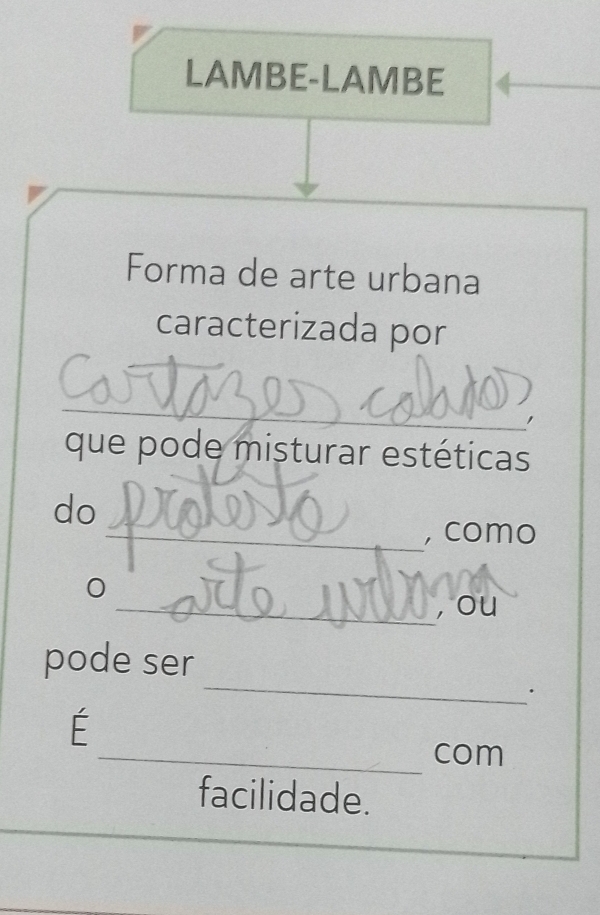 LAMBE-LAMBE
Forma de arte urbana
caracterizada por
cartazes colados,
que pode misturar estéticas
do protesto, como
o arte urbana, ou
pode ser ____.
É ____ com
facilidade.